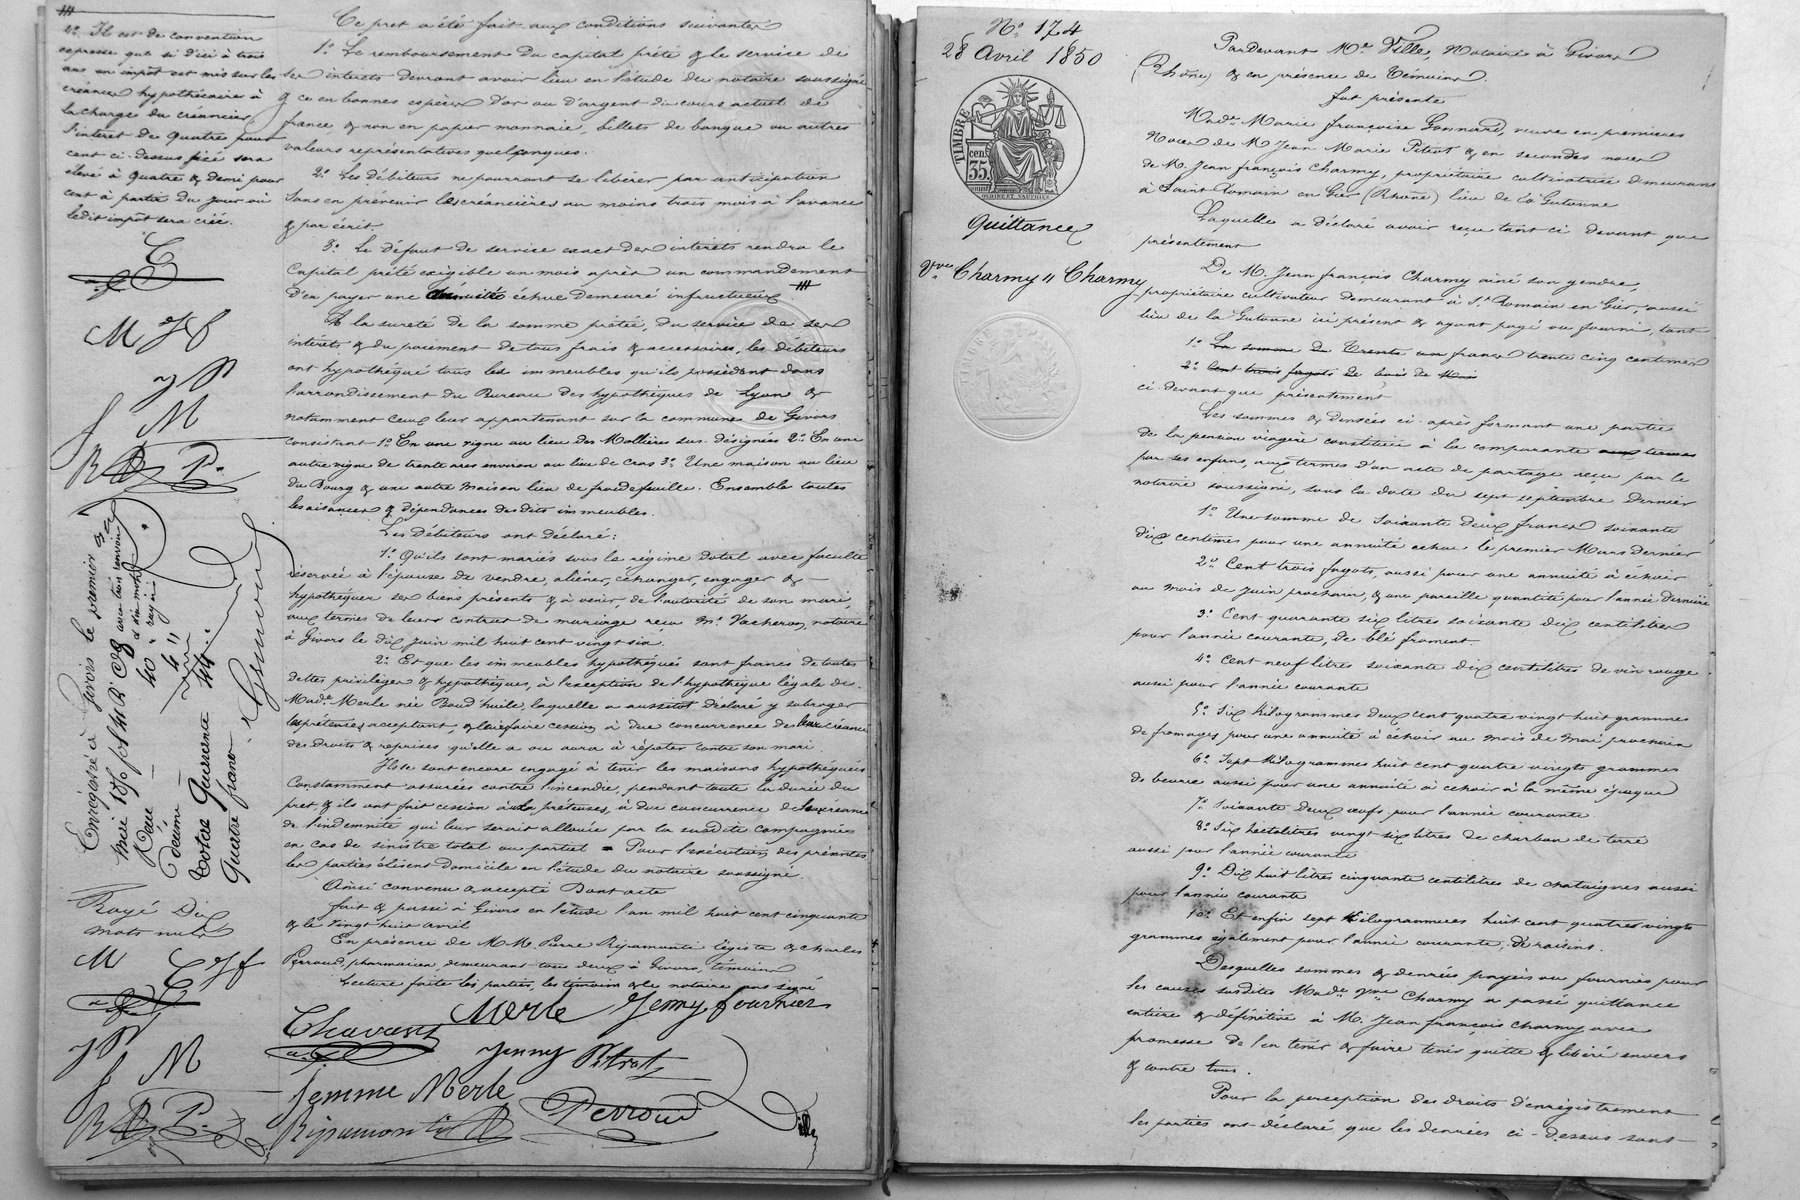 4º Il est de convention
expresse que si d'ici à trois
ans un impôt est mis sur les
créances hypothécaires à
la charge du créancier,
l'interet de quatre pour
cent ci-dessus fixé sera
élevé à quatre & demi pour
cent à partir du jour où
ledit impôt sera créé.
Ce pret a été fait aux conditions suivantes
1º Le remboursement du capital prêté & le service de
ses intérets devront avoir lieu en l'étude du notaire soussigné
& ce en bonnes espèces d'or ou d'argent du cours actuel de
france, & non en papier monnaie, billets de banque ou autres
valeurs représentatives quelconques.
2º Les débiteurs ne pourront se libérer par anticipation
sans en prévenir les créancières au moins trois mois à l'avance
& par écrit.
3º Le défaut de service exact des intérêts rendra le
capital prêté exigible un mois après un commandement
d'en payer une annuité échue demeuré infructueux
A la sureté de la somme prêtée, du service de ses
intérêts & du paiement de tous frais & accessoires, les débiteurs
ont hypothéqué tous les immeubles qu'ils possèdent dans
l'arrondissement du Bureau des hypothèques de Lyon &
notamment ceux leur appartenant sur la commune de Givors
consistant 1º En une vigne au lieu des Mollières sus-désignée 2º En une
autre vigne de trente ares environ au lieu de cras 3º Une maison au lieu
du Bourg & une autre maison lieu de froidefeuille. Ensemble toutes
les aisances & dépendances desdits immeubles.
Les Débiteurs ont déclaré:
1º Qu'ils sont mariés sous le régime dotal avec faculté
réservée à l'épouse de vendre, aliéner, échanger, engager &
hypothéquer ses biens présents & à venir, de l'autorité de son mari,
aux termes de leurs contrat de mariage reçu Me Vacheron, notaire
à Givors le dix juin mil huit cent vingt six.
2º Et que les immeubles hypothéqués sont francs de toutes
dettes privilèges & hypothèques, à l'exception de l'hypothèque légale de
Made Merle née Boud'huile, laquelle a aussitot déclaré y subroger
les prêteuses acceptant, & leur faire cession à due concurrence de leur créance
des droits & reprises qu'elle a ou aura à répéter contre son mari.
Ils se sont encore engagé à tenir les maisons hypothéquées
constamment assurées contre l'incendie, pendant toute la durée du
pret, & ils ont fait cession aux prêteuses, à due concurrence de leur créance
de l'indemnité qui leur serait allouée par la susdite compagnie
en cas de sinistre total ou partiel = Pour l'exécution des présentes
les parties élisent domicile en l'étude du notaire soussigné.
Ainsi convenu & accepté Dont acte
fait & passé à Givors en l'étude l'an mil huit cent cinquante
& le vingt huit avril
En présence de M.M. Pierre Ripamonti légiste & Charles
Perroud, pharmacien, demeurant tous deux à Givors, témoins
Lecture faite les parties, les témoins & le notaire ont signé
Chavant Merle Jenny fournier
Jenny Pitrat
femme Merle
Ripamonti Perroud
Enregistré à Givors le premier
mai 1850
Reçu
décime
Total quarante
quatre francs
Rayé Dix
mots nuls
Nº 174
28 Avril 1850
TIMBRE
cen.
35
Quittance
Vve Charmy " Charmy
Pardevant Me Ville, Notaire à Givors
(Rhône) & en présence de Témoins
fut présente
Made Marie françoise Gonnard, veuve en premières
noces de M. Jean Marie Pitrat & en secondes noces
de M. Jean françois Charmy, propriétaire cultivatrice demeurant
à Saint Romain en Gier (Rhône) lieu de la Gutonne
Laquelle a déclaré avoir reçu tant ci devant que
présentement
De M. Jean françois Charmy ainé son gendre,
propriétaire cultivateur demeurant à St Romain en Gier, aussi
lieu de la Gutonne ici présent & ayant payé ou fourni, tant
1º La somme de Trente un francs trente cinq centimes
2º Cent trois fagots de bois de
ci-devant que présentement
Les sommes & denrées ci-après formant une partie
de la pension viagère constituée à la comparante aux termes
par ses enfans, aux termes d'un acte de partage reçu par le
notaire soussigné, sous la date du sept septembre dernier
1º Une somme de soixante deux francs soixante
dix centimes pour une annuité échue le premier Mars dernier
2º Cent trois fagots, aussi pour une annuité à échoir
au mois de juin prochain, & une pareille quantité pour l'année dernière
3º Cent quarante six litres soixante dix centilitres
pour l'année courante, de blé froment
4º Cent neuf litres soixante dix centilitres de vin rouge
aussi pour l'année courante
5º Six kilogrammes deux cent quatre vingt huit grammes
de fromages pour une annuité à échoir au mois de mai prochain
6º Sept kilogrammes huit cent quatre vingts grammes
de beurre aussi pour une annuité à échoir à la même époque
7º Soixante deux œufs pour l'année courante.
8º Six hectolitres vingt six litres de charbon de terre
aussi pour l'année courante
9º Dix huit litres cinquante centilitres de chataignes aussi
pour l'année courante
10º Et enfin sept kilogrammes huit cent quatre vingts
grammes également pour l'année courante, de raisins.
Desquelles sommes & denrées payées ou fournies pour
les causes susdites Made Vve Charmy a passé quittance
entière & définitive à M. Jean françois Charmy avec
promesse de l'en tenir & faire tenir quitte & libéré envers
& contre tous.
Pour la perception des droits d'enregistrement
les parties ont déclaré que les denrées ci-dessus sont